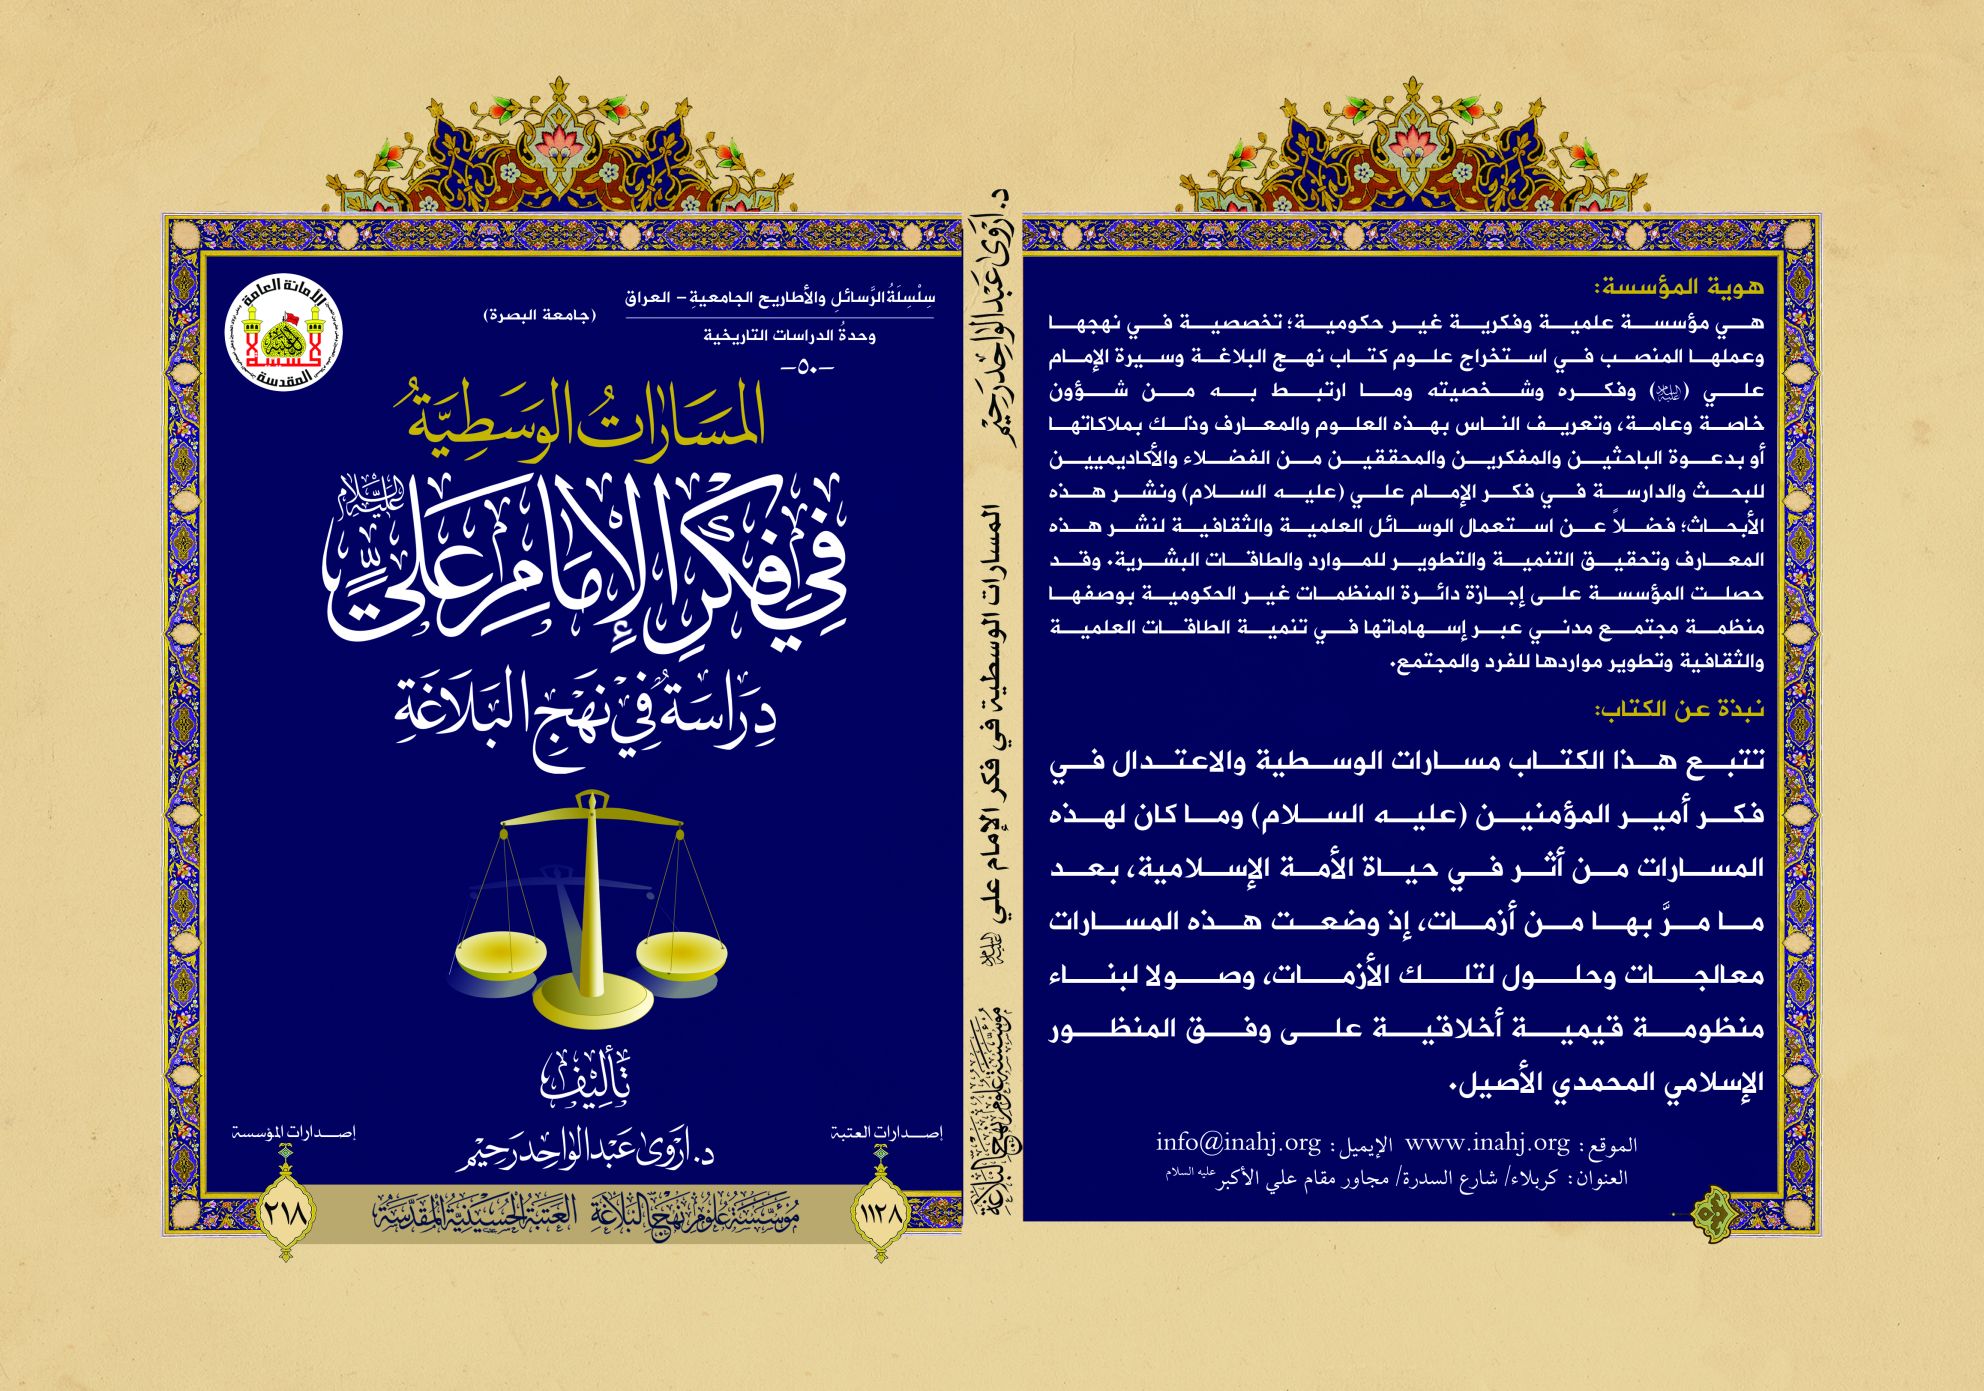 سِلْسِلَةُ الرَّسائلِ والأطاريحِ الجامعيةِ – العراق
(جامعة البصرة)
وحدةُ الدراسات التاريخية
–٥٠–
المَسَارَاتُ الوَسَطِيَّةُ
فِي فِكْرِ الإِمَامِ عَلِيٍّ عَلَيْهِ السَّلَام
دِرَاسَةٌ فِي نَهْجِ البَلَاغَةِ
تَأْلِيْفُ
د. اَرْوَى عَبْدالوَاحِد رَحِيْم
إصدارات العتبة
إصدارات المؤسسة
١١٢٨
مُؤَسَّسَةُ عُلُومِ نَهْجِ البَلَاغَةِ العَتَبَةُ الحُسَيْنِيَّةُ المُقَدَّسَةُ
٢١٨
الأمانة العامة
المقدسة
د. اَرْوَى عَبْدالوَاحِد رَحِيْم
المسارات الوسطية في فكر الإمام علي عليه السلام
مُؤَسَّسَةُ عُلُومِ نَهْجِ البَلَاغَةِ
هوية المؤسسة:
هي مؤسسة علمية وفكرية غير حكومية؛ تخصصية في نهجها
وعملها المنصب في استخراج علوم كتاب نهج البلاغة وسيرة الإمام
علي (عليه السلام) وفكره وشخصيته وما ارتبط به من شؤون
خاصة وعامة، وتعريف الناس بهذه العلوم والمعارف وذلك بملاكاتها
أو بدعوة الباحثين والمفكرين والمحققين من الفضلاء والأكاديميين
للبحث والدارسة في فكر الإمام علي (عليه السلام) ونشر هذه
الأبحاث؛ فضلاً عن استعمال الوسائل العلمية والثقافية لنشر هذه
المعارف وتحقيق التنمية والتطوير للموارد والطاقات البشرية. وقد
حصلت المؤسسة على إجازة دائرة المنظمات غير الحكومية بوصفها
منظمة مجتمع مدني عبر إسهاماتها في تنمية الطاقات العلمية
والثقافية وتطوير مواردها للفرد والمجتمع.
نبذة عن الكتاب:
تتبع هذا الكتاب مسارات الوسطية والاعتدال في
فكر أمير المؤمنين (عليه السلام) وما كان لهذه
المسارات من أثر في حياة الأمة الإسلامية، بعد
ما مرَّ بها من أزمات، إذ وضعت هذه المسارات
معالجات وحلول لتلك الأزمات، وصولا لبناء
منظومة قيمية أخلاقية على وفق المنظور
الإسلامي المحمدي الأصيل.
الموقع: www.inahj.org الإيميل: info@inahj.org
العنوان: كربلاء/ شارع السدرة/ مجاور مقام علي الأكبر عليه السلام